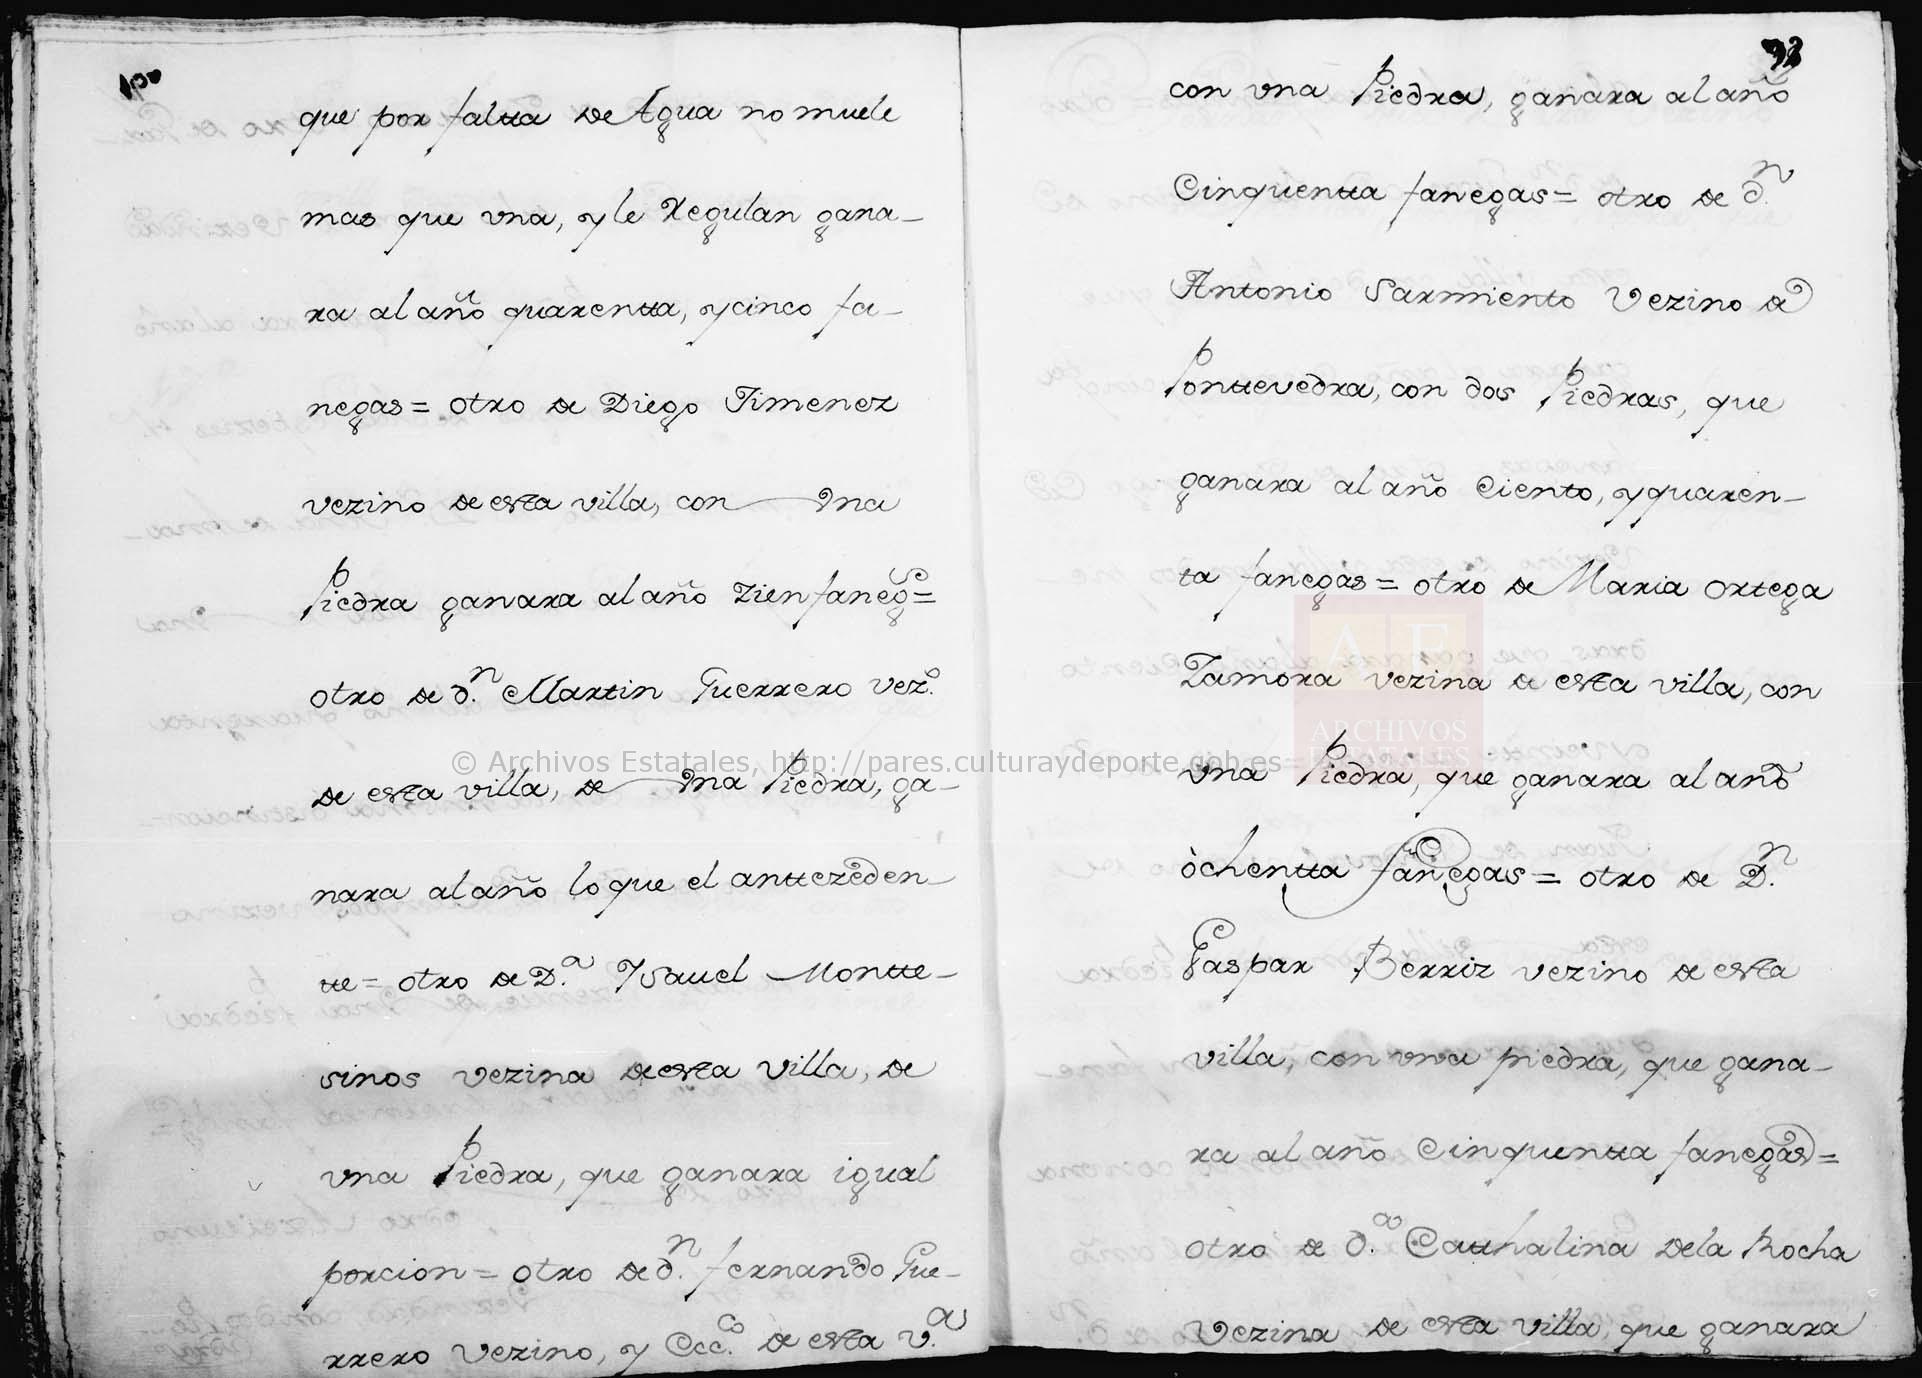 que por faltta de Agua no muele
mas que vna, y le Regulan gana-
ra al año quarentta, y cinco fa-
negas = otro de Diego Jimenez
vezino de esta villa, con vna
Piedra ganara al año Zien faneg.s =
otro de d.n Martin Guerrero vez.o
de esta villa, de vna Piedra, ga-
nara al año lo que el anttezeden-
tte = otro de D.a Ysauel Montte-
sinos vezina de esta villa, de
vna Piedra, que ganara igual
porcion = otro de d.n fernando Gue-
rrero vezino, y Ecc.co de esta v.a
92
con vna Piedra, ganara al año
Cinquentta fanegas = otro de d.n
Antonio Sarmiento Vezino de
Ponttevedra, con dos Piedras, que
ganara al año Ciento, y quaren-
ta fanegas = otro de Maria Ortega
Zamora vezina de esta villa, con
vna Piedra, que ganara al año
òchentta fanegas = otro de D.n
Gaspar Berriz vezino de esta
villa, con vna piedra, que gana-
ra al año Cinquentta fanegas =
otro de d.a Catthalina de la Rocha
Vezina de esta villa, que ganara
© Archivos Estatales, http://pares.culturaydeporte.gob.es
AE
ARCHIVOS
ESTATALES